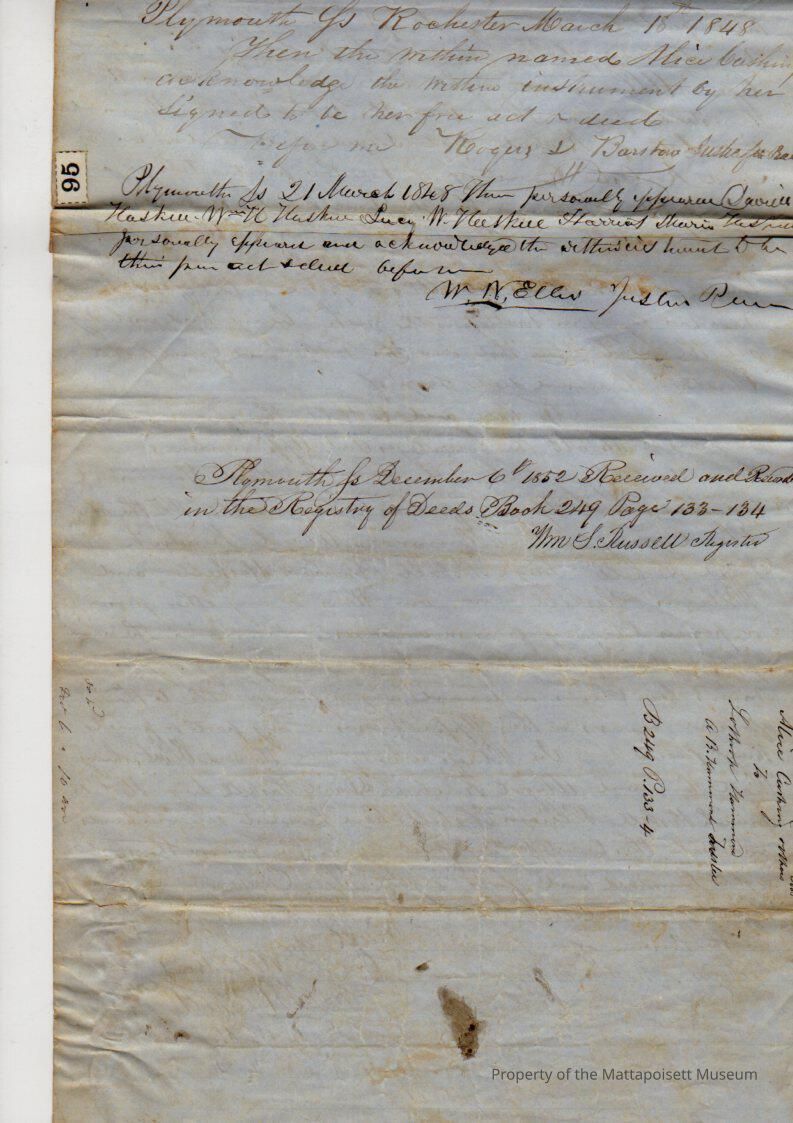 Plymouth Ss Rochester March 18th 1848
Then the within named Alice Cushing
acknowledge the within instrument by her
signed to be her free act & deed
Before me Rogers L Barstow Justice
95
Plymouth Ss 21 March 1848 Then personally appeared
Haskell Wm H Haskell Lucy W. Haskell Harriot Maria
personally appeared and acknowledged the within to be
their free act & deed before me
W. N. Ellis Justice
Plymouth Ss December 6th 1852 Received and
in the Registry of Deeds Book 249 Page 133-134
Wm S. Russell Register
B 249 P. 133-4
Alice Cushing others
to
Lothrop Hammond
A B. Hammond Trustee
Property of the Mattapoisett Museum